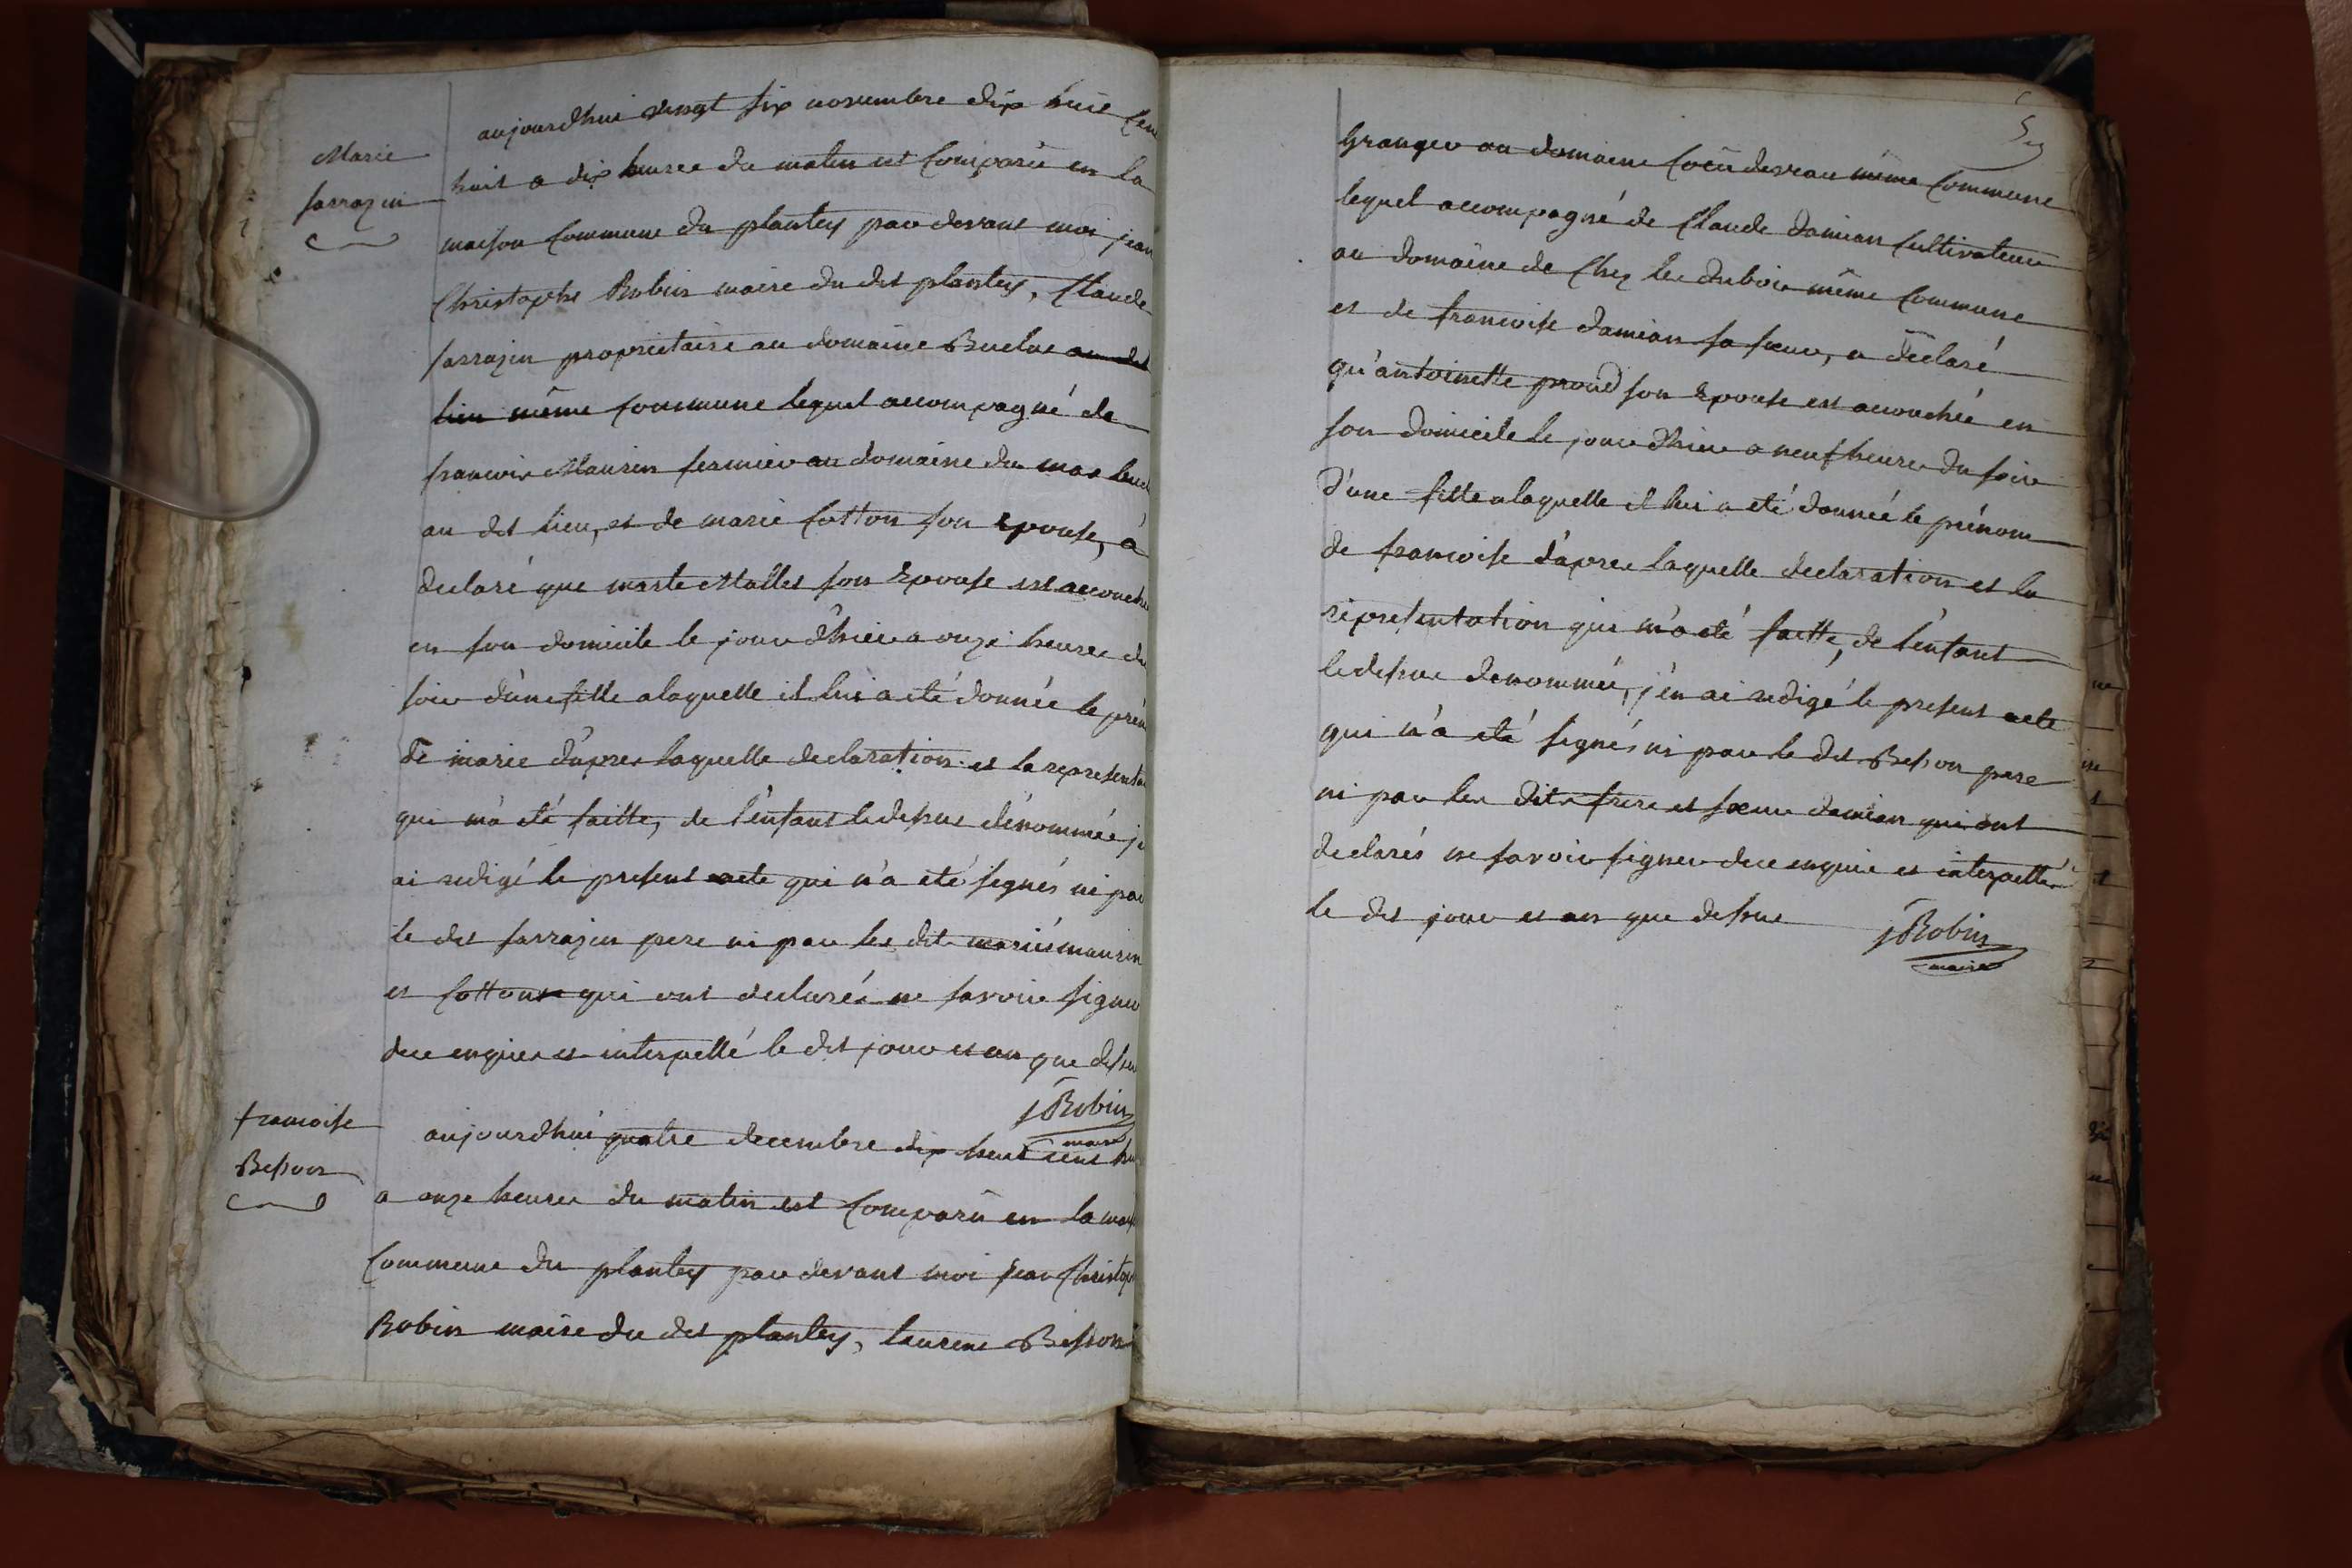 Marie
sarrazin
aujourdhui vingt six novembre dix huit cen
huit a dix heures du matin est Comparû en la
maison Commune du plantey par devant moi jean
Christophe Robin maire du dit plantey, Claude
sarrazin proprietaire au domaine Buclas au dit
lieu même Commune lequel accompagné de
francois Maurin fermier au domaine du mas
au dit lieu, et de marie Cotton son Epouse, a
declaré que marste Mallet son Epouse est accouché
en son domicile le jour d'hier a onze heures du
soir d'une fille a laquelle il lui a eté donnée le prén
de marie d'apres laquelle declaration et la representa
qui m'a eté faitte, de l'enfant ledessus dénommée j
ai redigé le present acte qui n'a eté signés ni par
le dit sarrazin pere ni par les dits mariés maurin
et Cotton qui ont declarés ne savoir signer
de ce enquis et interpellé le dit jour et an que dessus
JRobin
maire
francoise
Besson
aujourdhui quatre decembre dix huit cent hu
a onze heures du matin est Comparû en la mais
Commune du plantey par devant moi jean Christop
Robin maire du dit plantey, laurent Besson
Granger au domaine même Commune
lequel accompagné de Claude damian Cultivateur
au domaine de Chez les dubois même Commune
et de francoise damian sa sœur, a déclaré
qu'antoinette proud son Epouse est accouchée en
son domicile le jour d'hier a neuf heures du soir
d'une fille a laquelle il lui a eté donnée le prénom
de francoise d'apres laquelle declaration et la
representation qui m'a eté faitte, de l'enfant
ledessus denommée, j'en ai redigé le present acte
qui n'a eté signés ni par le dit Besson pere
ni par les dits frere et sœur damian qui ont
declarés ne savoir signer de ce enquis et interpellés
le dit jour et an que dessus
JRobin
maire